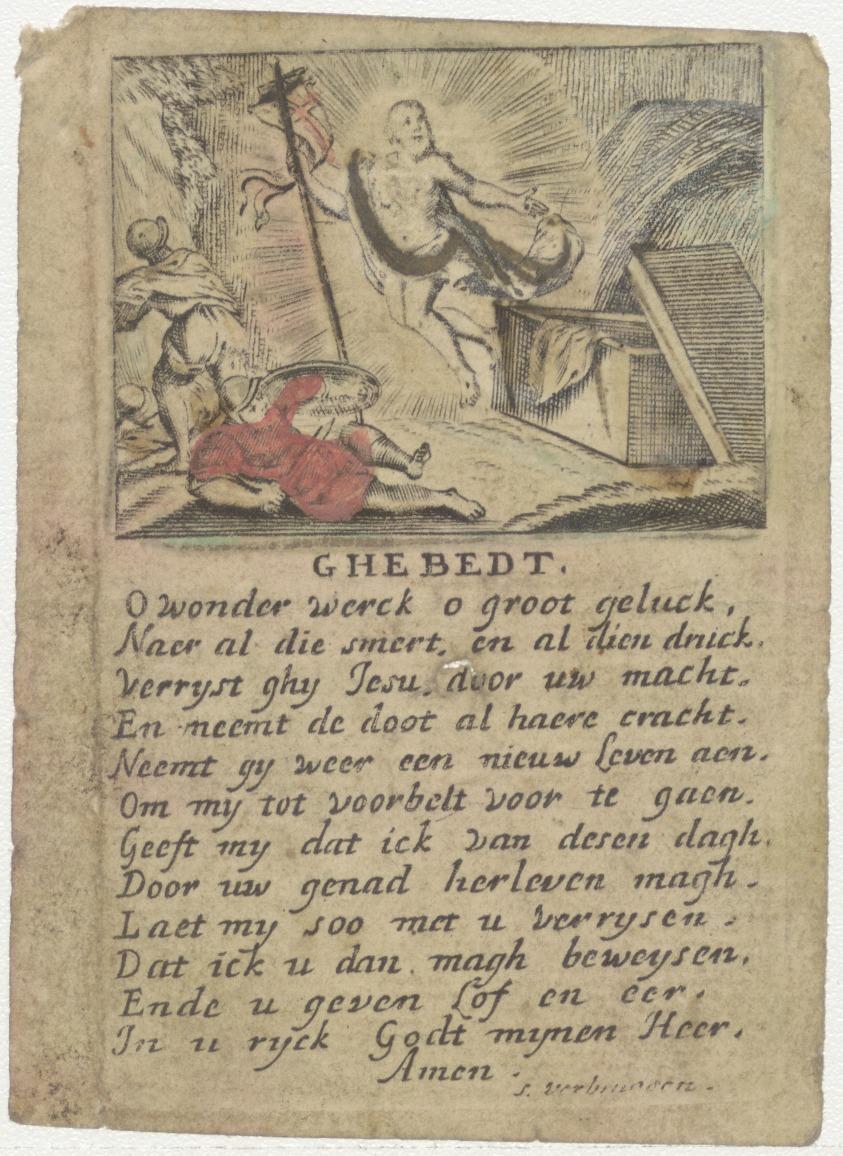 GHEBEDT.
O wonder werck o groot geluck,
Naer al die smert, en al dien druck.
Verryst ghy Jesu, door uw macht.
En neemt de doot al haere cracht.
Neemt gy weer een nieuw Leven aen.
Om my tot voorbelt voor te gaen.
Geeft my dat ick van desen dagh.
Door uw genad herleven magh.
Laet my soo met u verrysen.
Dat ick u dan magh beweysen.
Ende u geven Lof en eer.
In u ryck Godt mynen Heer.
Amen.
s. verbruggen.